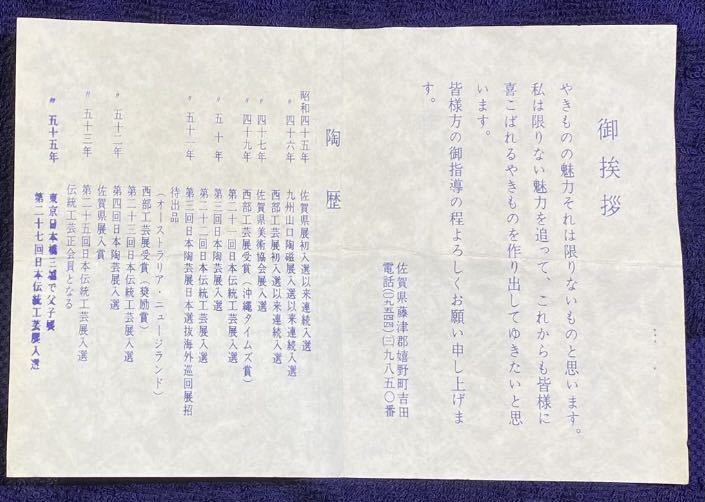 御挨拶
やきものの魅力それは限りないものと思います。
私は限りない魅力を追って、これからも皆様に
喜こばれるやきものを作り出してゆきたいと思
います。
皆様方の御指導の程よろしくお願い申し上げま
す。
佐賀県藤津郡嬉野町吉田
電話(〇九五四四)(三)九八五〇番
陶歴
昭和四十五年 佐賀県展初入選以来連続入選
〃四十六年 九州山口陶磁展入選以来連続入選
西部工芸展初入選以来連続入選
〃四十七年 佐賀県美術協会展入選
〃四十九年 西部工芸展受賞(沖縄タイムズ賞)
第二十一回日本伝統工芸展入選
〃五十年 第三回日本陶芸展入選
第二十二回日本伝統工芸展入選
〃五十一年 第三回日本陶芸展日本選抜海外巡回展招
待出品
(オーストラリア・ニュージランド)
西部工芸展受賞(奨励賞)
第二十三回日本伝統工芸展入選
〃五十二年 第四回日本陶芸展入選
佐賀県展入賞
〃五十三年 第二十五回日本伝統工芸展入選
伝統工芸正会員となる
〃五十五年 東京日本橋三越で父子展
第二十七回日本伝統工芸展入選